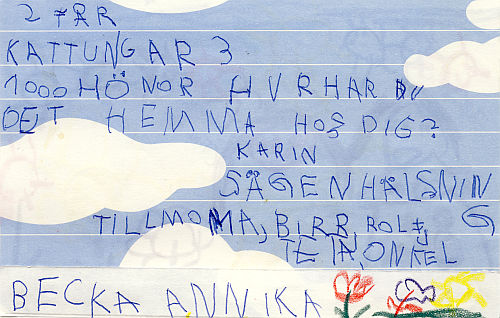 2 FÅR
KATTUNGAR 3
1000 HÖNOR HVRHAR DU
DET HEMMA HOS DIG?
KARIN
SÄGEN HÄLSNIN
G
TILLMOMA, BIRR, ROLF,
TETA, ONKEL
BECKA ANNIKA